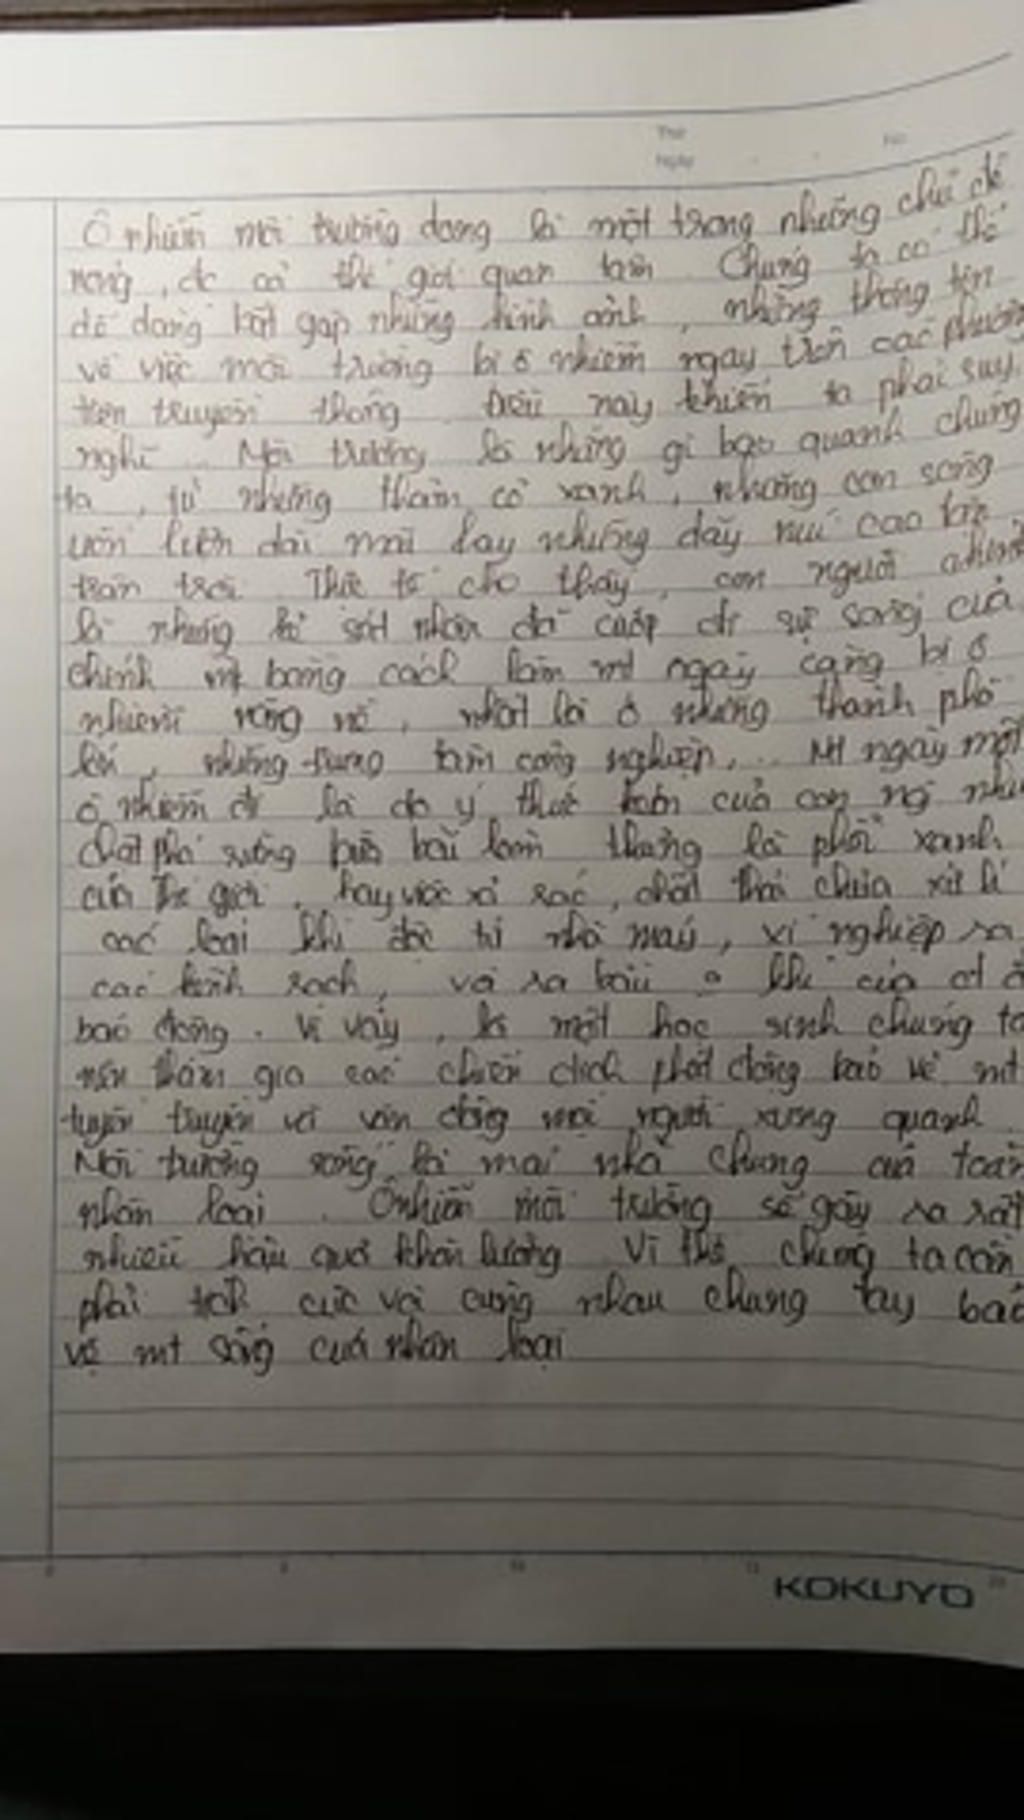 Thứ
No
Ngày
Ô nhiễm môi trường đang là một trong những chủ đề
nóng, đc cả thế giới quan tâm. Chúng ta có thể
dễ dàng bắt gặp những hình ảnh, những thông tin
về việc môi trường bị ô nhiễm ngay trên các phương
tiện truyền thông. Điều này khiến ta phải suy
nghĩ... Môi trường là những gì bao quanh chúng
ta, từ những thảm cỏ xanh, những con sông
uốn lượn dài mãi hay những dãy núi cao
Thực tế cho thấy, con người chính
là những kẻ sát nhân đã cướp đi sự sống của
chính mt bằng cách làm mt ngày càng bị ô
nhiễm nặng nề, nhất là ở những thành phố
lớn, những trung tâm công nghiệp,... Mt ngày một
ô nhiễm đi là do ý thức kém của con ng như
chặt phá rừng bừa bãi làm thủng lá phổi xanh
của thế giới, hay việc xả rác, chất thải chưa xử lí
các loại khí độc từ nhà máy, xí nghiệp ra
các kênh rạch, và ra bầu khí của
báo động. Vì vậy, là một học sinh chúng ta
nên tham gia các chiến dịch phát động bảo vệ mt
tuyên truyền và vận động mọi người xung quanh.
Môi trường sống là mái nhà chung của toàn
nhân loại. Ô nhiễm môi trường sẽ gây ra rất
nhiều hậu quả khôn lường. Vì thế chúng ta cần
phải tích cực và cùng nhau chung tay bảo
vệ mt sống của nhân loại
KOKUYO